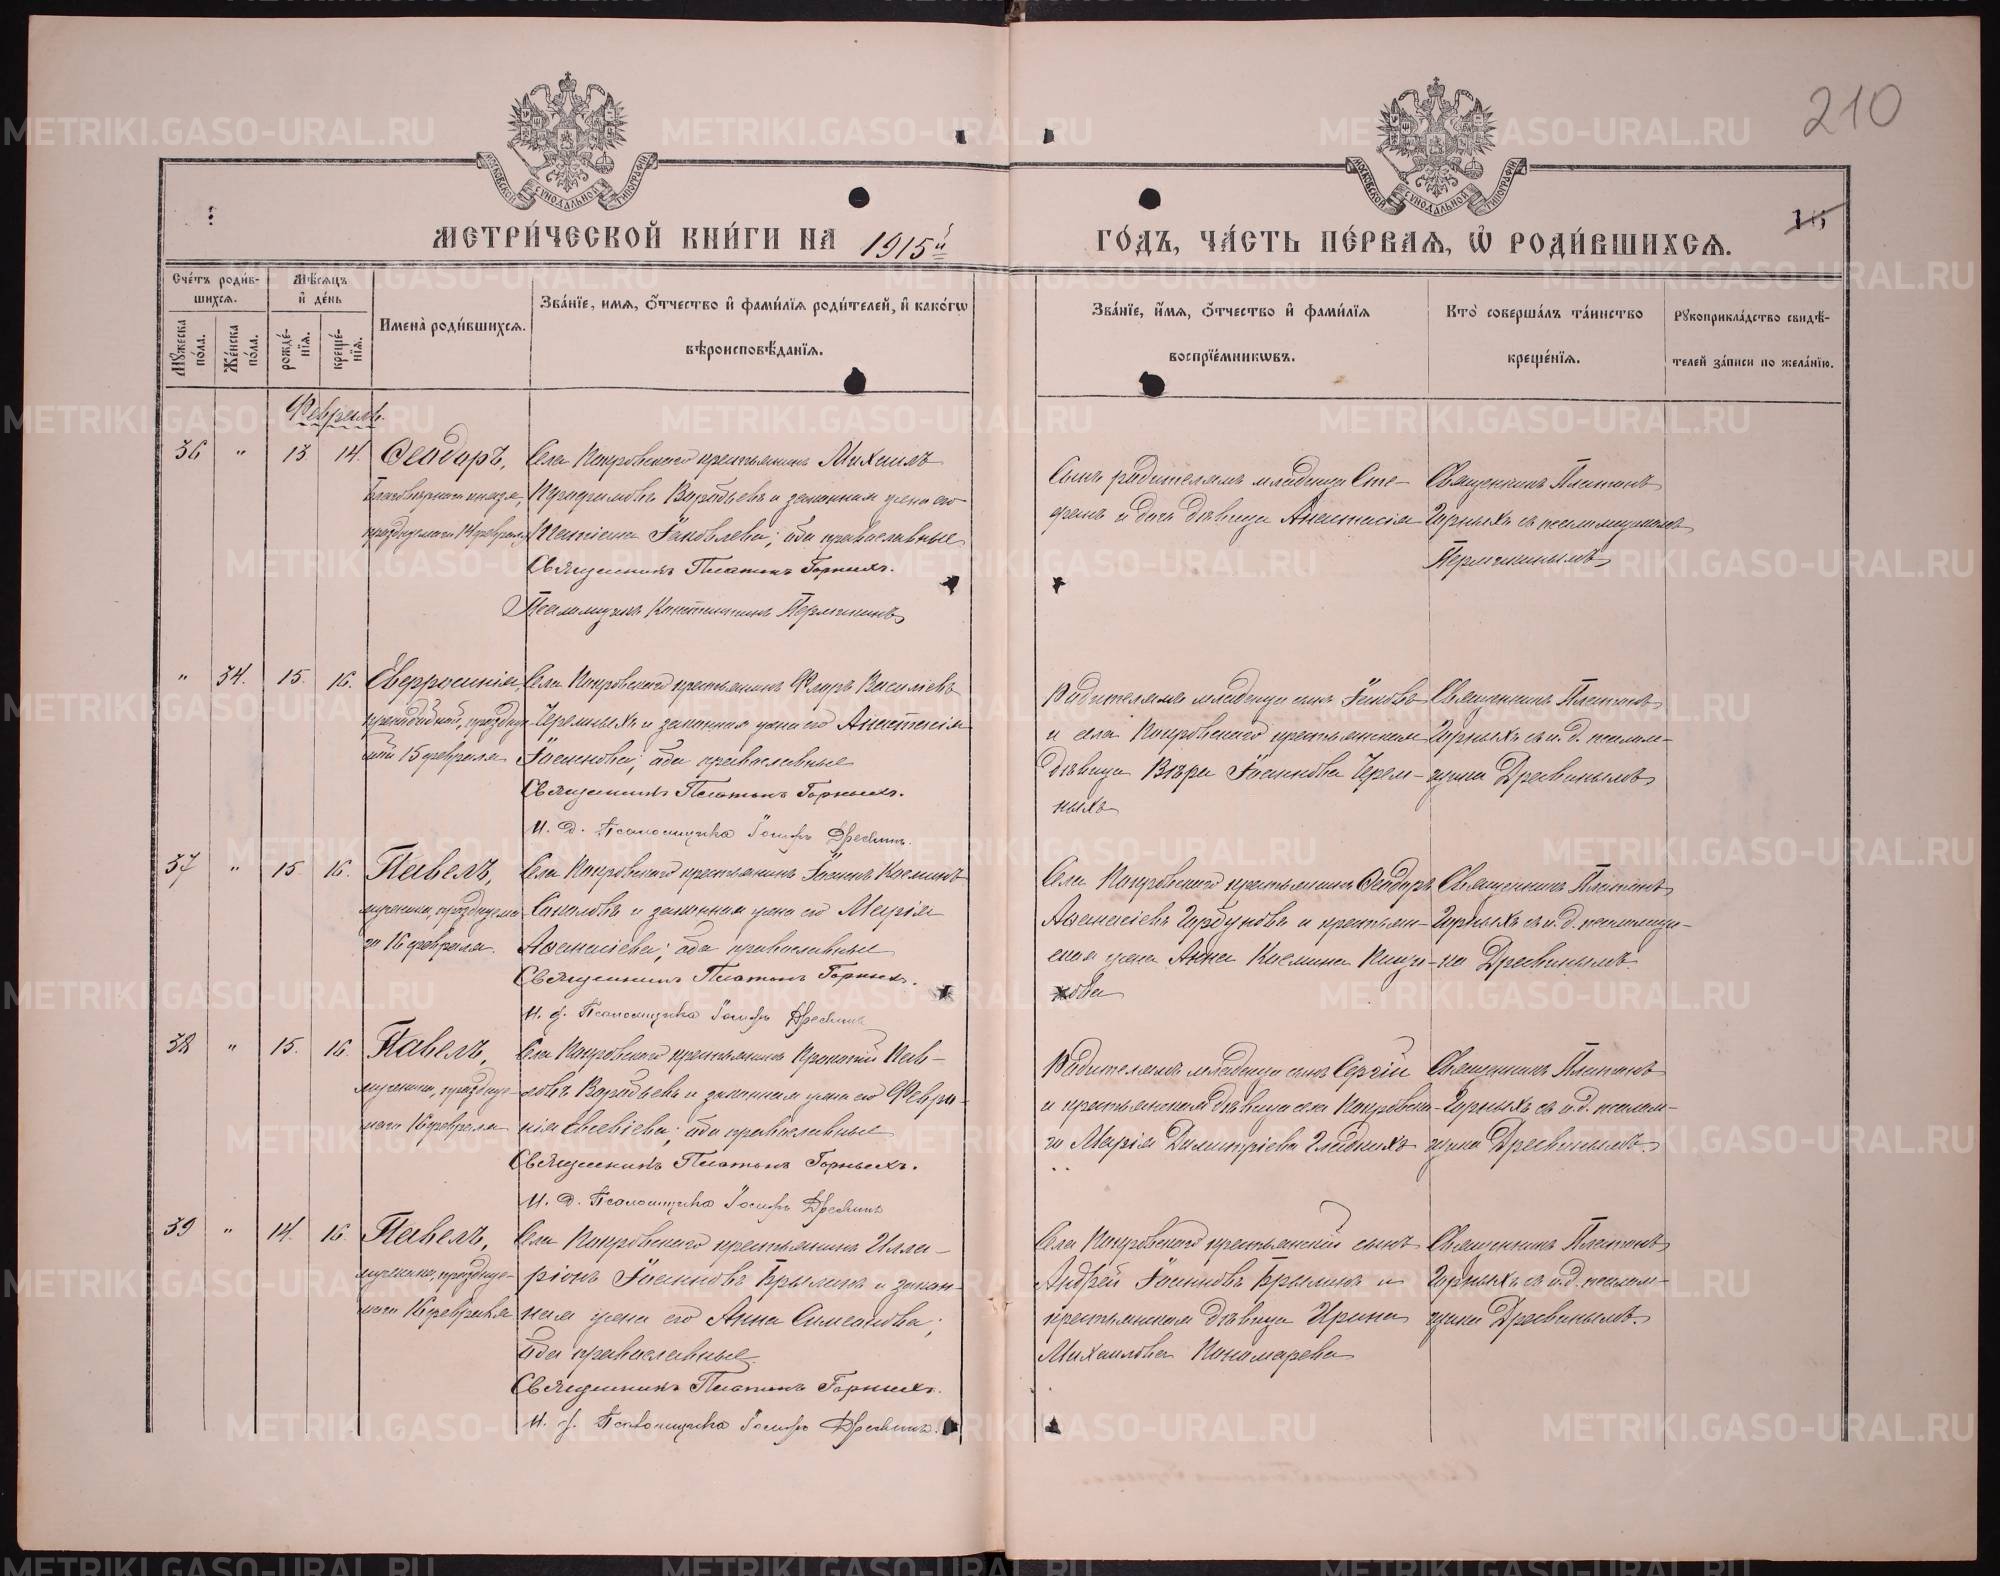 210
16
МОСКОВСКОЙ СѴНОДАЛЬНОЙ ТИПОГРАФІИ
МОСКОВСКОЙ СѴНОДАЛЬНОЙ ТИПОГРАФІИ
МЕТРИ́ЧЕСКОЙ КНИ́ГИ НА 1915й ГО́ДЪ, ЧА́СТЬ ПЕ́РВАѦ, Ѡ РОДИ́ВШИХСѦ.
Сче́тъ роди́в-
шихсѧ.
Мꙋжеска по́ла.
Же́нска по́ла.
Мѣ́сѧцъ и҆ де́нь
рожде́-
нїѧ.
креще́-
нїѧ.
И҆мена̀ роди́вшихсѧ.
Зва́нїе, и҆мѧ, Ѻ҆́тчество и҆ фами́лїѧ роди́телей, и҆ како́гѡ
вѣроисповѣ́данїѧ.
Зва́нїе, и҆́мѧ, Ѻ҆́тчество и҆ фами́лїѧ
воспрїе́мникѡвъ.
Кто̀ соверша́лъ та́инство
креще́нїѧ.
Рꙋкоприкла́дство свидѣ́-
телей за́писи по жела́нїю.
Февраль.
36 " 13 14. Ѳеодоръ,
Благовѣрнаго князя,
празднуемаго 14 февраля
Села Покровскаго крестьянинъ Михаилъ
Воробьевъ и законная жена его
Іаковлева; оба православные
Священникъ Платонъ Горныхъ.
Псаломщикъ Константинъ Пермикинъ
Сынъ родителямъ младенца Сте-
фанъ и дочь дѣвица Анастасія
Священникъ Платонъ
Горныхъ съ псаломщикомъ
Пермикинымъ
" 34. 15. 16. Евфросинія,
преподобной, праздну-
15 февраля
Села Покровскаго крестьянинъ Флоръ Василіевъ
Черемныхъ и законная жена его Анастасія
Іоаннова; оба православные
Священникъ Платонъ Горныхъ.
И. д. Псаломщика Іосифъ Древинъ.
Родителямъ младенца сынъ Іаковъ
и села Покровскаго крестьянская
дѣвица Вѣра Іоаннова Черем-
ныхъ
Священникъ Платонъ
Горныхъ съ и. д. псалом-
щика Древинымъ
37 " 15 16. Павелъ,
мученика, празднуема-
го 16 февраля.
Села Покровскаго крестьянинъ Іоаннъ Косминъ
Соколовъ и законная жена его Марія
Аѳанасіева; оба православные
Священникъ Платонъ Горныхъ.
И. д. Псаломщика Іосифъ Древинъ
Села Покровскаго крестьянинъ Ѳеодоръ
Аѳанасіевъ Горбуновъ и крестьян-
ская жена Анна Космина
кова
Священникъ Платонъ
Горныхъ съ и. д. псаломщи-
ка Древинымъ.
38 " 15. 16. Павелъ,
мученика, праздуе-
маго 16 февраля
Села Покровскаго крестьянинъ Прокопій Пав-
ловъ Воробьевъ и законная жена его Февро-
нія Евсевіева; оба православные
Священникъ Платонъ Горныхъ.
И. д. Псаломщика Іосифъ Древинъ
Родителямъ младенца сынъ Сергій
и крестьянская дѣвица села Покровска-
го Марія Димитріева Гладкихъ
Священникъ Платонъ
Горныхъ съ и. д. псалом-
щика Древинымъ.
39 " 14. 16. Павелъ,
мученика, празднуе-
маго 16 февраля
Села Покровскаго крестьянинъ Илла-
ріонъ Іоанновъ Брылинъ и закон-
ная жена его Анна Симеонова;
оба православные
Священникъ Платонъ Горныхъ.
И. д. Псаломщика Іосифъ Древинъ.
Села Покровскаго крестьянскій сынъ
Андрей Іоанновъ Брылинъ и
крестьянская дѣвица Ирина
Михаилова Пономарева
Священникъ Платонъ
Горныхъ съ и. д. псалом-
щика Древинымъ.
METRIKI.GASO-URAL.RU